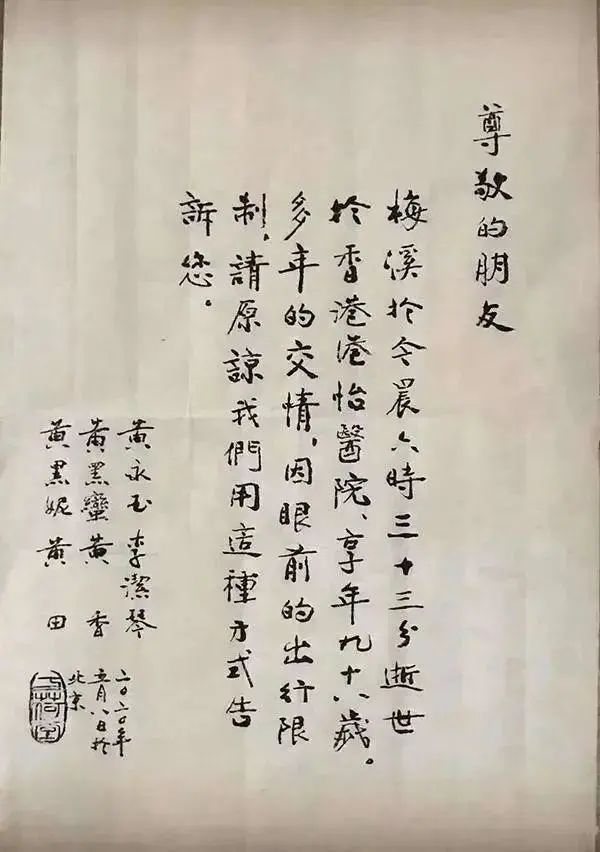 尊敬的朋友
梅溪於今晨六時三十三分逝世
於香港港怡醫院、享年九十八歲。
多年的交情，因眼前的出行限
制，請原諒我們用這種方式告
訴您。
黃永玉 李潔琴
黃黑蠻 黃香
黃黑妮 黃田
二〇二〇年
五月八日於
北京
万荷堂